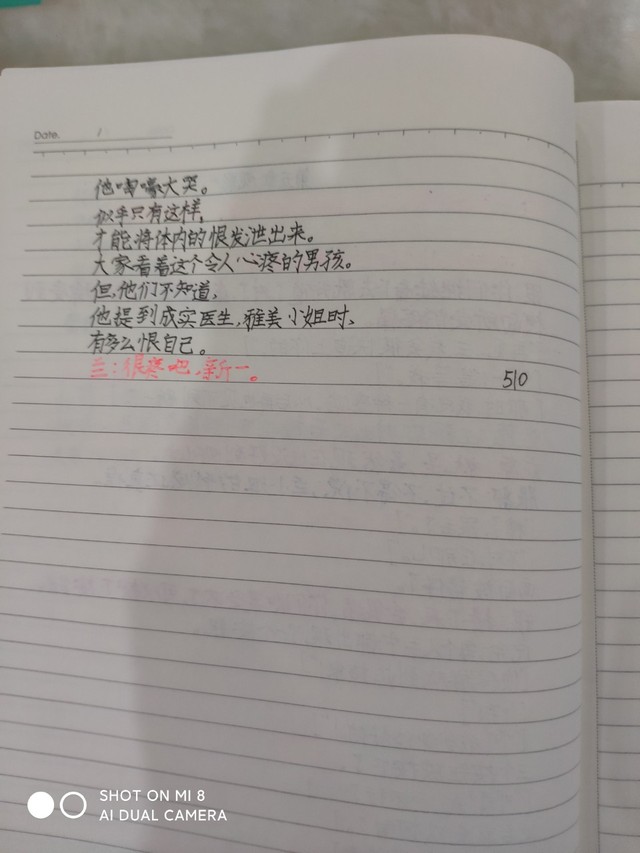 Date. /
他嚎嚎大哭。
似乎只有这样,
才能将体内的恨发泄出来。
大家看着这个令人心疼的男孩。
但,他们不知道,
他提到成实医生,雅美小姐时、
有多么恨自己。
兰:很寒吧,新一。
510
SHOT ON MI 8
AI DUAL CAMERA